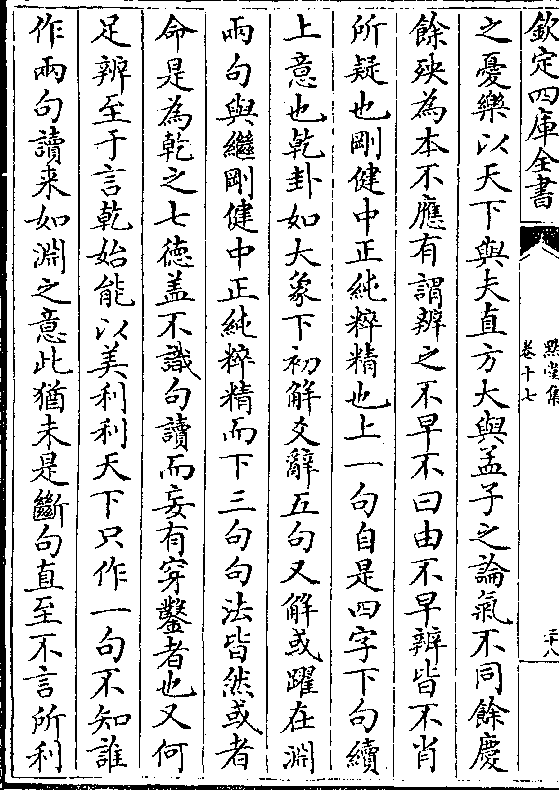 欽定四庫全書
默堂集
卷十七
之憂樂以天下與夫直方大與孟子之論氣不同餘慶
餘殃為本不應有謂辨之不早不曰由不早辨皆不肖
所疑也剛健中正純粹精也上一句自是四字下句續
上意也乾卦如大象下初解爻辭五句又解或躍在淵
兩句與繼剛健中正純粹精而下三句句法皆然或者
命是為乾之七德盖不識句讀而妄有穿鑿者也又何
足辨至于言乾始能以美利利天下只作一句不知誰
作兩句讀来如淵之意此猶未是斷句直至不言所利